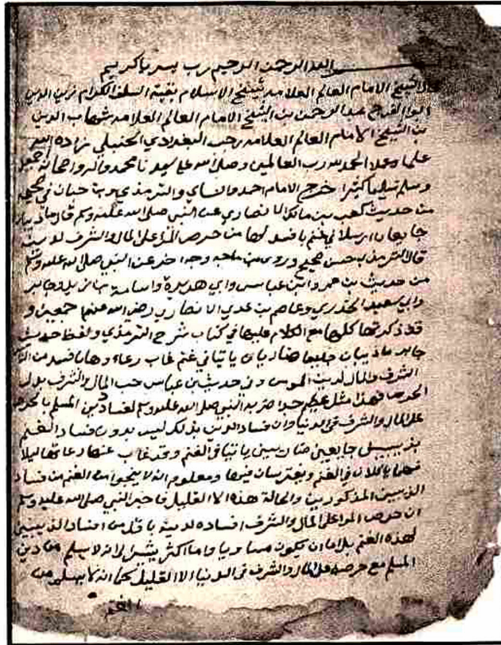 الله الرحمن الرحيم رب يسر يا كريم
الشيخ الامام العالم العلامة شيخ الاسلام بقية السلف الكرام زين الدين
ابو الفرج عبد الرحمن بن الشيخ الامام العالم العلامة شهاب الدين
بن الشيخ الامام العالم العلامة رجب البغدادي الحنبلي زاده الله
علما الحمد لله رب العالمين وصلى الله على سيدنا محمد واله واصحابه
وسلم تسليما كثيرا خرج الامام احمد والنساي والترمذي وبن حبان في صحيحه
من حديث كعب بن مالك الانصاري عن النبي صلى الله عليه وسلم قال ماذيبان
جايعان ارسلا في غنم بافسد لها من حرص المرء على المال والشرف لدينه
قال الترمذي حسن صحيح وروي من وجه اخر عن النبي صلى الله عليه وسلم
من حديث بن عمر وابن عباس وابي هريرة واسامة بن زيد وجابر
وابي سعيد الخدري وعاصم بن عدي الانصاري رضي الله عنهم اجمعين و
قد ذكرتها كلها مع الكلام عليها في كتاب شرح الترمذي ولفظ حديث
جابر ماذيبان ضاريان ياتيا في غنم غاب رعاوها بافسد من التماس
الشرف والمال لدين المومن وفي حديث بن عباس حب المال والشرف بدل
الحرص فهذا مثل عظيم جدا ضربه النبي صلى الله عليه وسلم لفساد دين المسلم بالحرص
على المال والشرف في الدنيا وان فساد الدين بذلك ليس بدون فساد الغنم
بذيبين جايعين ضاريين ياتيا في الغنم وقد غاب عنها رعاتها ليلا
فهما ياكلان في الغنم ويفترسان فيها ومعلوم انه لا ينجوا من الغنم من فساد
الذيبين المذكورين والحالة هذه الا القليل فاخبر النبي صلى الله عليه وسلم
ان حرص المرء على المال والشرف افساده لدينه باقل من افساد الذيبين
لهذه الغنم بل اما ان يكون مساويا واما اكثر يشير لانه لا يسلم من دين
المسلم مع حرصه على المال والشرف في الدنيا الا القليل كما انه لا يسلم من
الغنم